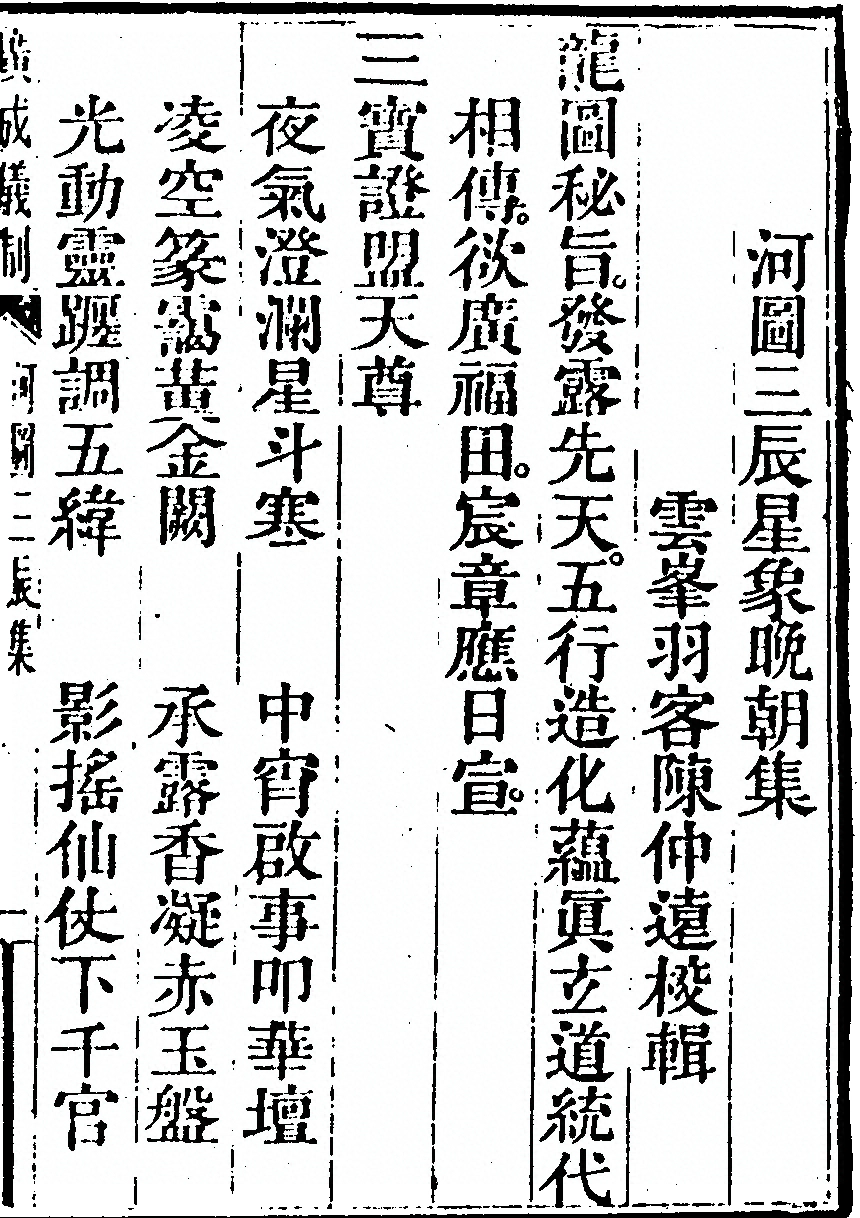 河圖三辰星象晚朝集
雲峯羽客陳仲遠校輯
龍圖秘旨。發露先天。五行造化蘊眞玄道統代
相傳。欲廣福田。宸章應日宣。
三寶證盟天尊
夜氣澄瀾星斗寒　中宵啟事叩華壇
凌空篆靄黃金闕　承露香凝赤玉盤
光動靈躔調五緯　影搖仙仗下千官
廣成儀制　河圖三辰集　一